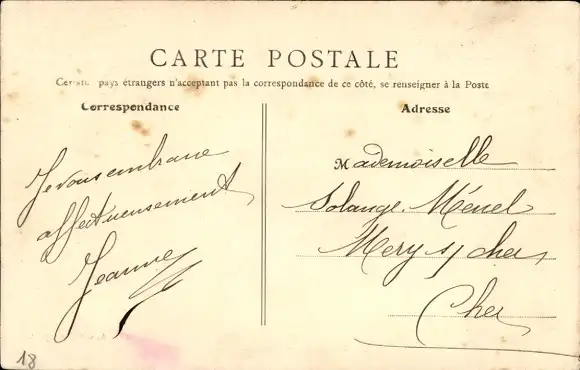 CARTE POSTALE
pays étrangers n'acceptant pas la correspondance de ce côté, se renseigner à la Poste
Correspondance
Adresse
Je vous embrasse
affectueusement
Jeanne
Mademoiselle
Solange Ménel
Mery s/ cher
Cher
18